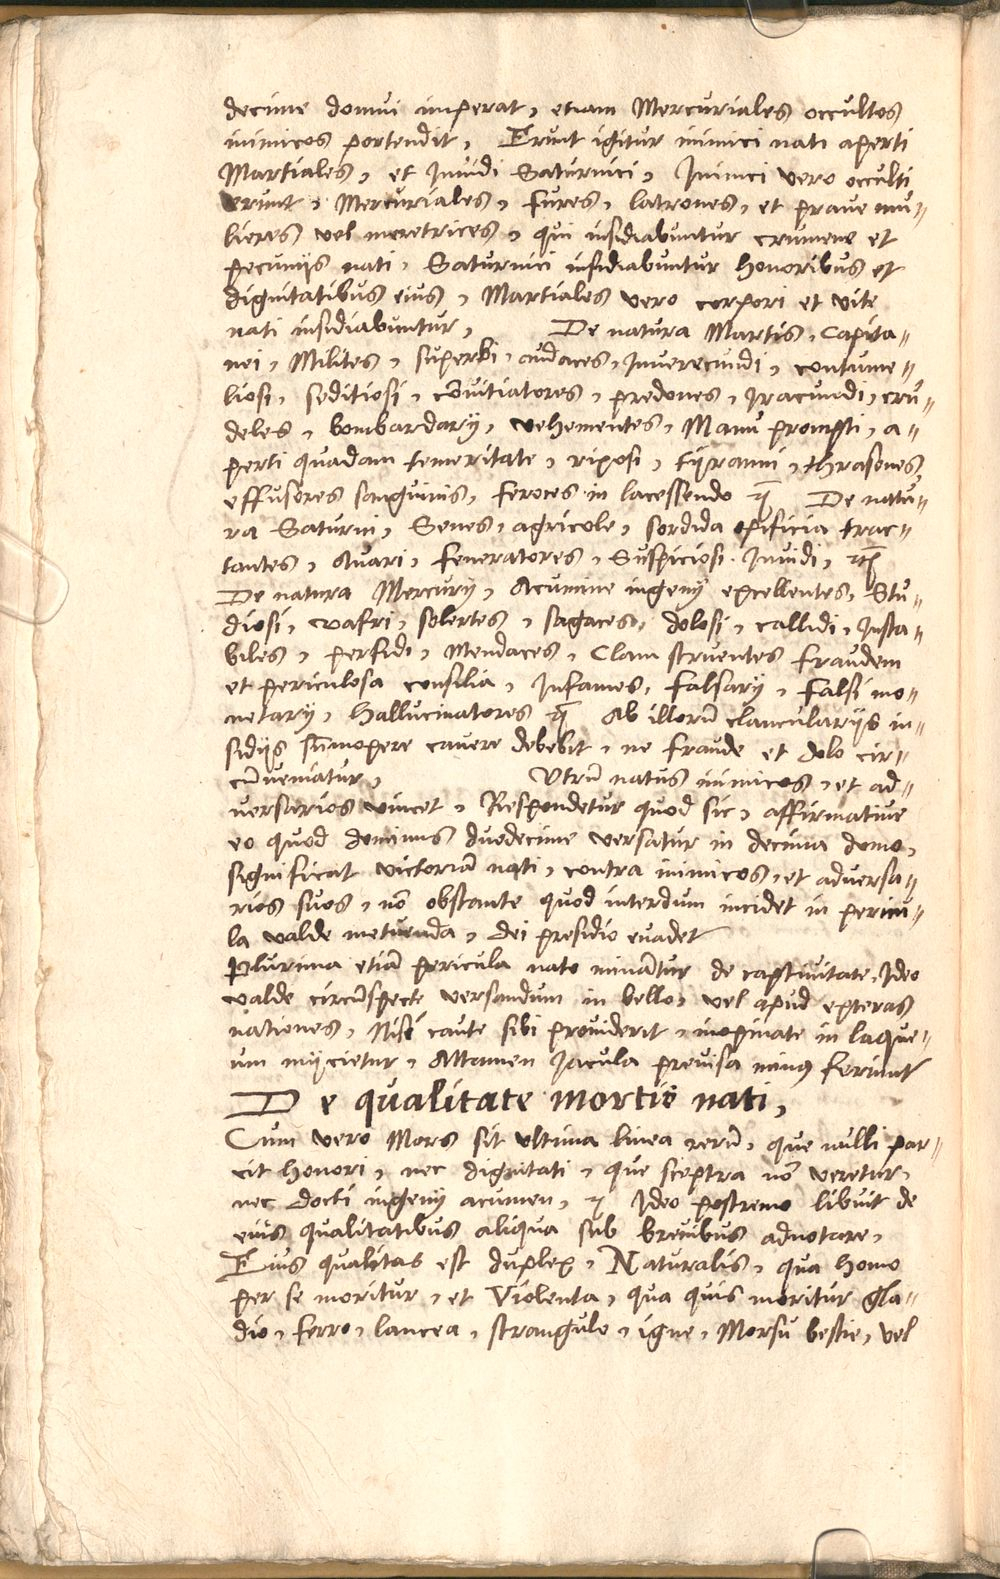 decime domui imperat, etiam Mercuriales occultos
inimicos portendit, Erunt igitur inimici nati aperti
Martiales, et Inuidi Saturnici, Inimici vero occulti
erunt, Mercuriales, fures, latrones, et praue mu=
lieres vel meretrices, qui insidiabuntur crumene et
pecunijs nati, Saturnici insidiabuntur honoribus et
dignitatibus eius, Martiales vero corpori et vite
nati insidiabuntur, De natura Martis, Capita=
nei, Milites, superbi, audaces, Inuerecundi, contume=
liosi, seditiosi, conuitiatores, predones, Iracundi, cru=
deles, bombardarij, vehementes, Manu prompti, a=
perti quadam temeritate, rixosi, tyranni, thrasones,
effusores sanguinis, feroces in lacessendo &c De natu=
ra Saturni, Senes, agricole, sordida opificia trac=
tantes, Auari, feneratores, Suspiciosi, Inuidi, &c
De natura Mercurij, Acumine ingenij excellentes, Stu=
diosi, vafri, solertes, sagaces, dolosi, callidi, Insta=
biles, perfidi, Mendaces, Clam struentes fraudem
et periculosa consilia, Infames, falsarij, falsi mo=
netarij, hallucinatores &c Ab illorū clancularijs in=
sidijs sūmopere cauere debebit, ne fraude et dolo cir=
cūueniatur, Vtrū natus inimicos, et ad=
uersarios vincet, Respondetur quod sic, affirmatiue
eo quod dominus duodecime versatur in decima domo,
significat victoriā nati, contra inimicos, et aduersa=
rios suos, nō obstante quod interdum incidet in pericu=
la valde metuenda, dei presidio euadet
Plurima etiā pericula nato minātur de captiuitate, Ideo
valde circūspecte versandum in bello, vel apud exteras
nationes, Nisi caute sibi prouiderit, inopinate in laque=
um inijcietur, Attamen Iacula preuisa minus feriunt
De qualitate mortis nati,
Cum vero Mors sit vltima linea rerū, que nulli par=
cit honori, nec dignitati, que sceptra nō veretur,
nec docti ingenij acumen, &c Ideo postremo libuit de
eius qualitatibus aliqua sub breuibus adnotare,
Eius qualitas est duplex, Naturalis, qua homo
per se moritur, et Violenta, qua quis moritur gla=
dio, ferro, lancea, strangulo, igne, Morsu bestie, vel